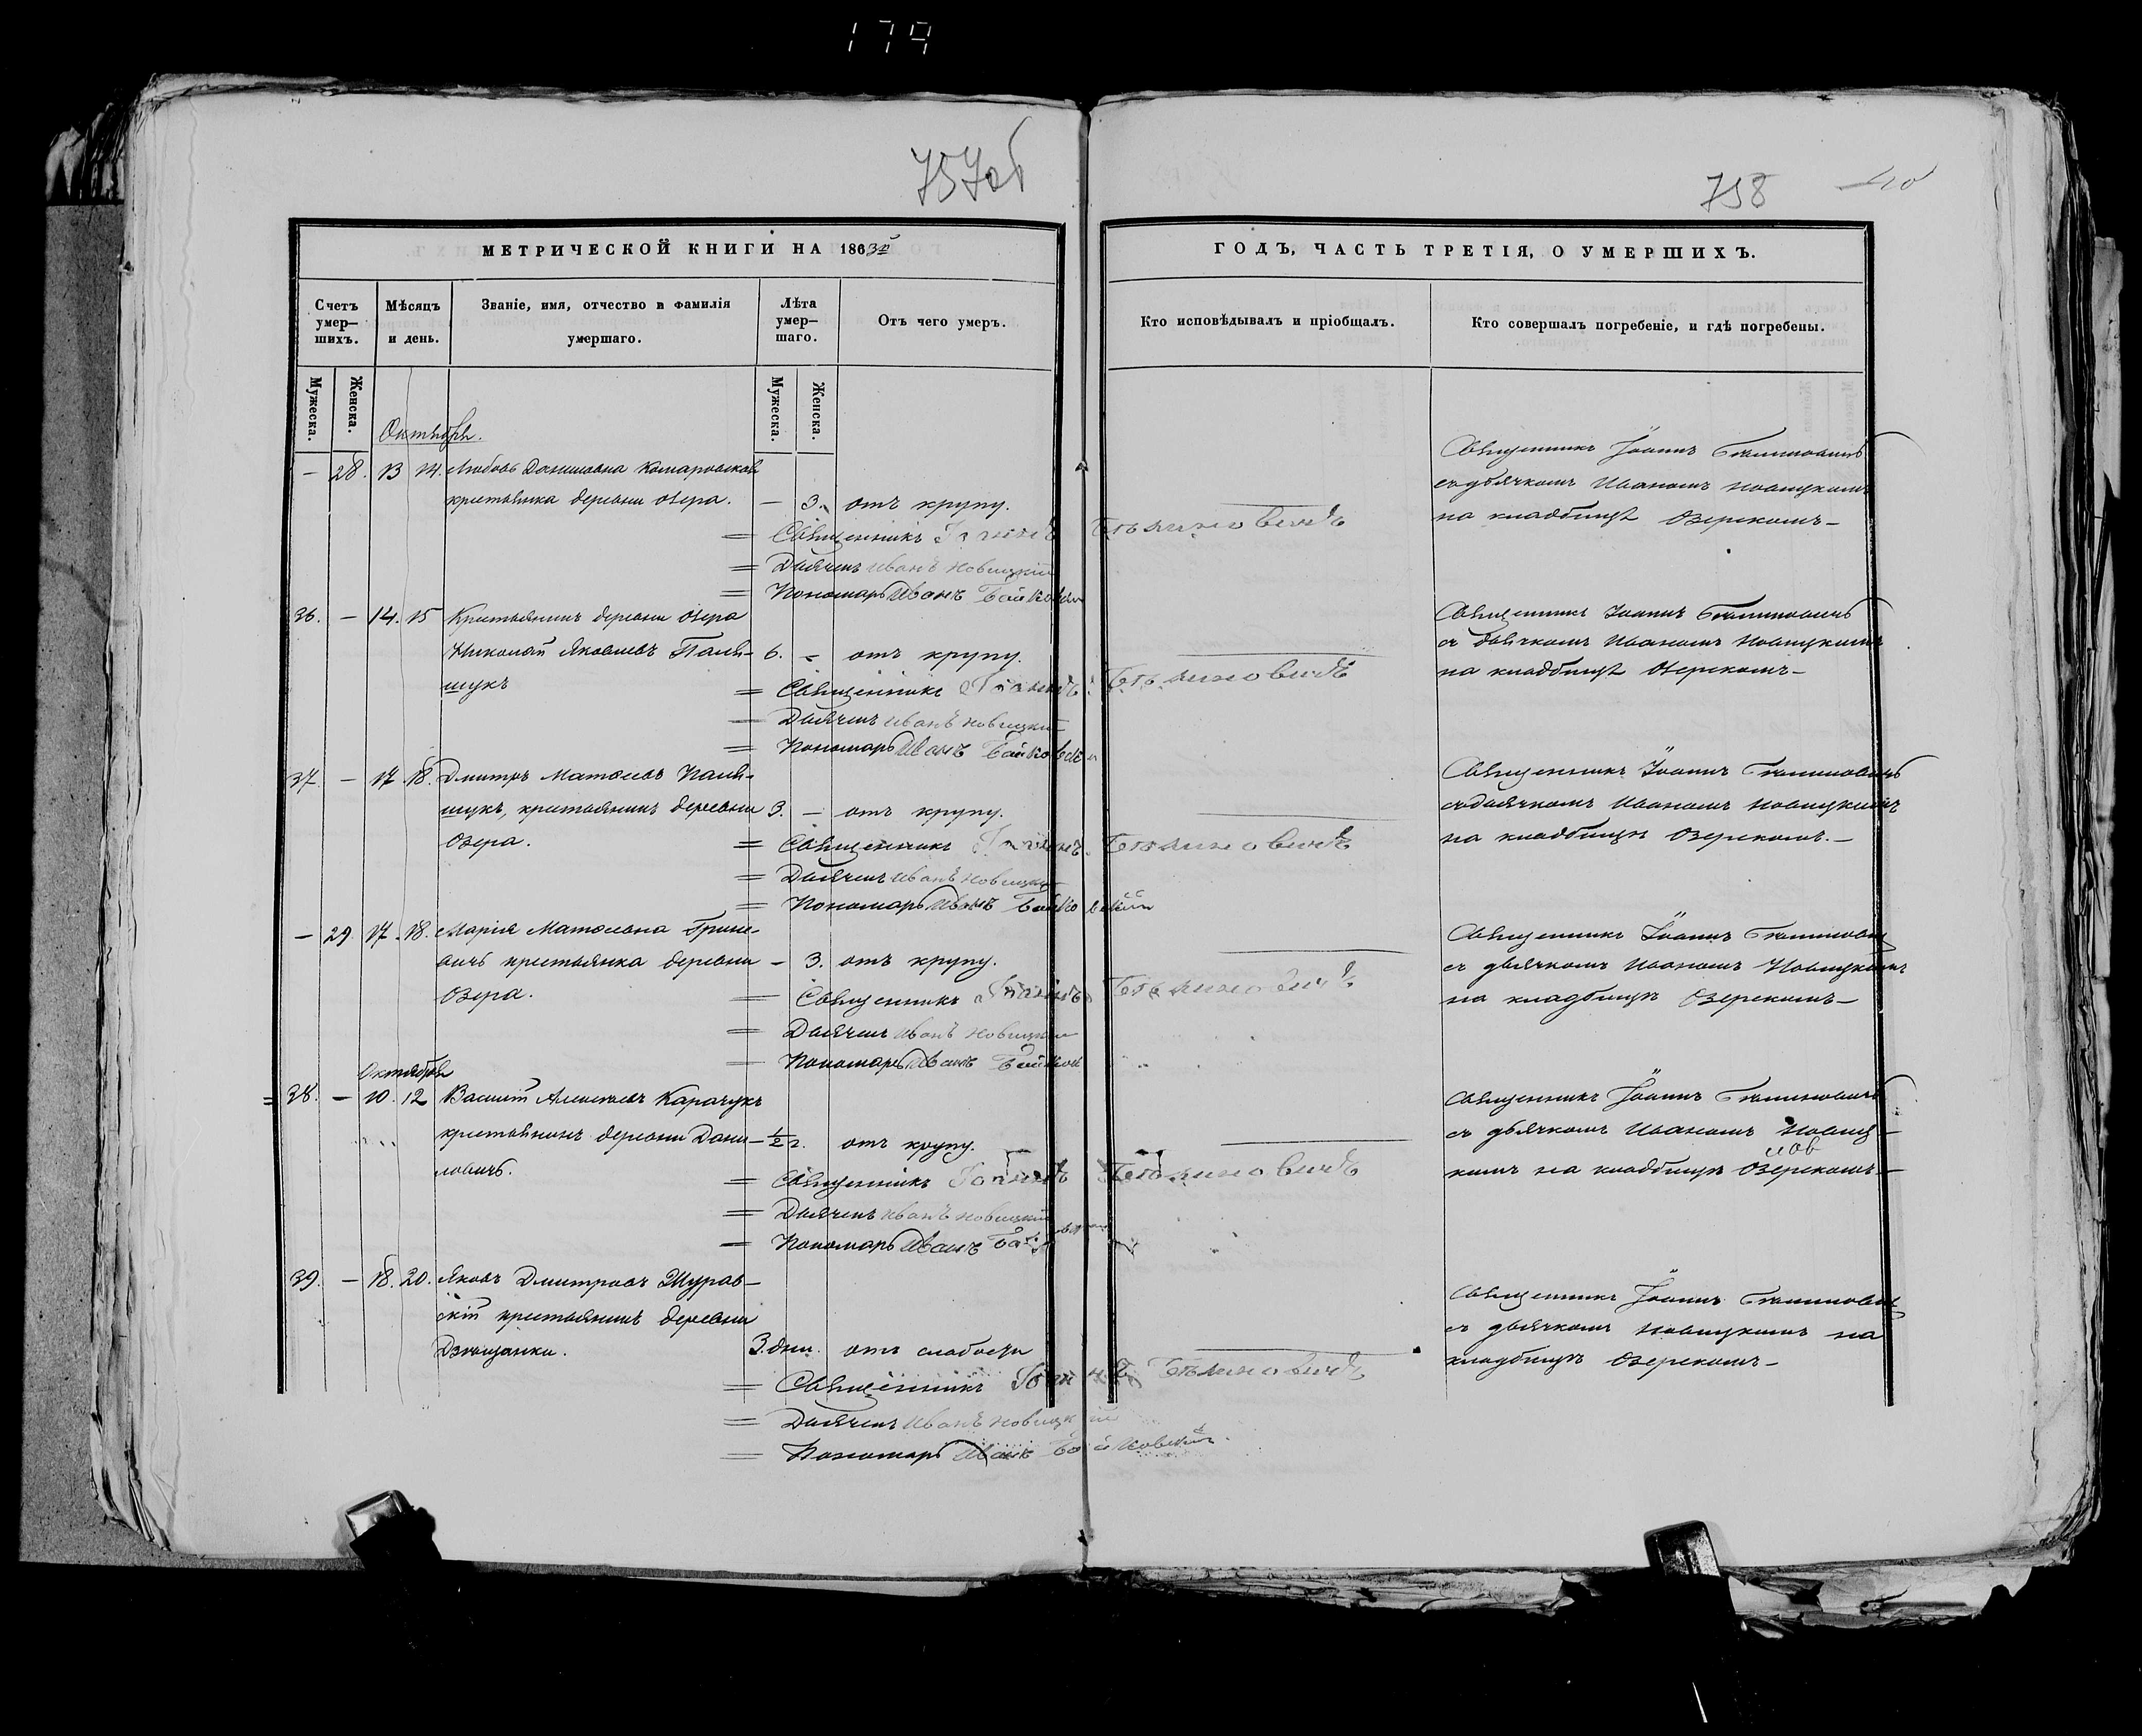 179
757об
758
МЕТРИЧЕСКОЙ КНИГИ НА 1863й
ГОДЪ, ЧАСТЬ ТРЕТІЯ, О УМЕРШИХЪ.
Счетъ умер–шихъ.
Мѣсяцъ и день.
Званіе, имя, отчество и фамилія умершаго.
Лѣта умер–шаго.
Отъ чего умеръ.
Кто исповѣдывалъ и пріобщалъ.
Кто совершалъ погребеніе, и гдѣ погребены.
Мужеска.
Женска.
Мужеска.
Женска.
Октября.
— 28. 13 14. Любовь Данилова Комаровская
крестьянка деревни Озера. — 3. отъ крупу.
= Священникъ Іоаннъ
= Дьячекъ Иванъ Новицкій
= Пономарь Иванъ
Священникъ Іоаннъ
съ дьячкомъ Иваномъ Новицкимъ
на кладбищѣ Озерскомъ—
36. — 14. 15 Крестьянинъ деревни Озера
Николай Яковлевъ Пали- 6. — отъ крупу.
щукъ
= Священникъ Іоаннъ
= Дьячекъ Иванъ Новицкій
= Пономарь Иванъ
Священникъ Іоаннъ
съ дьячкомъ Иваномъ Новицкимъ
на кладбищѣ Озерскомъ—
37 — 17 18. Дмитръ Матѳеевъ Пали-
щукъ, крестьянинъ деревни 3. — отъ крупу.
Озера.
= Священникъ Іоаннъ
= Дьячекъ Иванъ Новицкій
= Пономарь Иванъ
Священникъ Іоаннъ
съ дьячкомъ Иваномъ Новицкимъ
на кладбищѣ Озерскомъ.—
— 29. 17. 18. Марія Матѳеевна Грине-
вичъ крестьянка деревни — 3. отъ крупу.
Озера.
= Священникъ Іоаннъ
= Дьячекъ Иванъ Новицкій
= Пономарь Иванъ
Священникъ Іоаннъ
съ дьячкомъ Иваномъ Новицкимъ
на кладбищѣ Озерскомъ—
Октября
= 38. — 10. 12 Василій Алексеевъ Карачукъ
крестьянинъ деревни Дани- ½ г. отъ крупу.
ловичъ.
= Священникъ Іоаннъ
= Дьячекъ Иванъ Новицкій
= Пономарь Иванъ
Священникъ Іоаннъ
съ дьячкомъ Иваномъ Новиц-
кимъ на кладбищѣ Озерскомъ—
39. — 18. 20. Яковъ Дмитровъ Журав-
скій крестьянинъ деревни
3. дни. отъ слабости
= Священникъ Іоаннъ
= Дьячекъ Иванъ Новицкій
= Пономарь Иванъ
Священникъ Іоаннъ
съ дьячкомъ Новицкимъ на
кладбищѣ Озерскомъ—